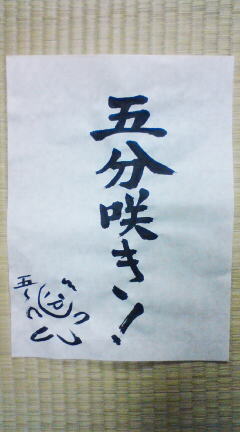 五分咲き!
五〜